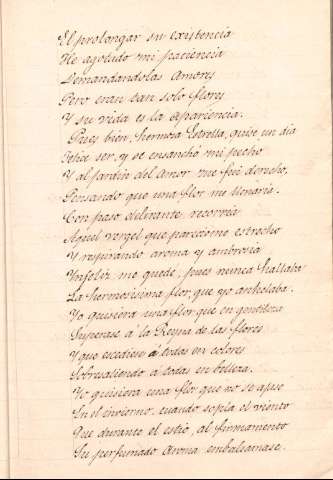 El prolongar su existencia
He agotado mi paciencia
Demandandolas Amores
Pero eran tan solo flores
Y su vida es la Apariencia.
Pues bien, hermosa Estrella, quise un dia
Felice ser, y se ensanchó mi pecho
Y al jardin del Amor me fui derecho,
Pensando que una flor me llenaria.
Con paso delirante recorria
Aquel vergel que pareciome estrecho
Y respirando aroma y ambrosia
Ynfeliz me quedé, pues nunca hallaba
La hermosisima flor, que yo anhelaba.
Yo quisiera una flor que en gentileza
Superase á la Reyna de las flores
Y que escediese á todas en colores
Sobresaliendo á todas en belleza.
Yo quisiera una flor que no se ajase
En el invierno, cuando sopla el viento
Que durante el estio, al firmamento
Su perfumado Aroma embalsamase.